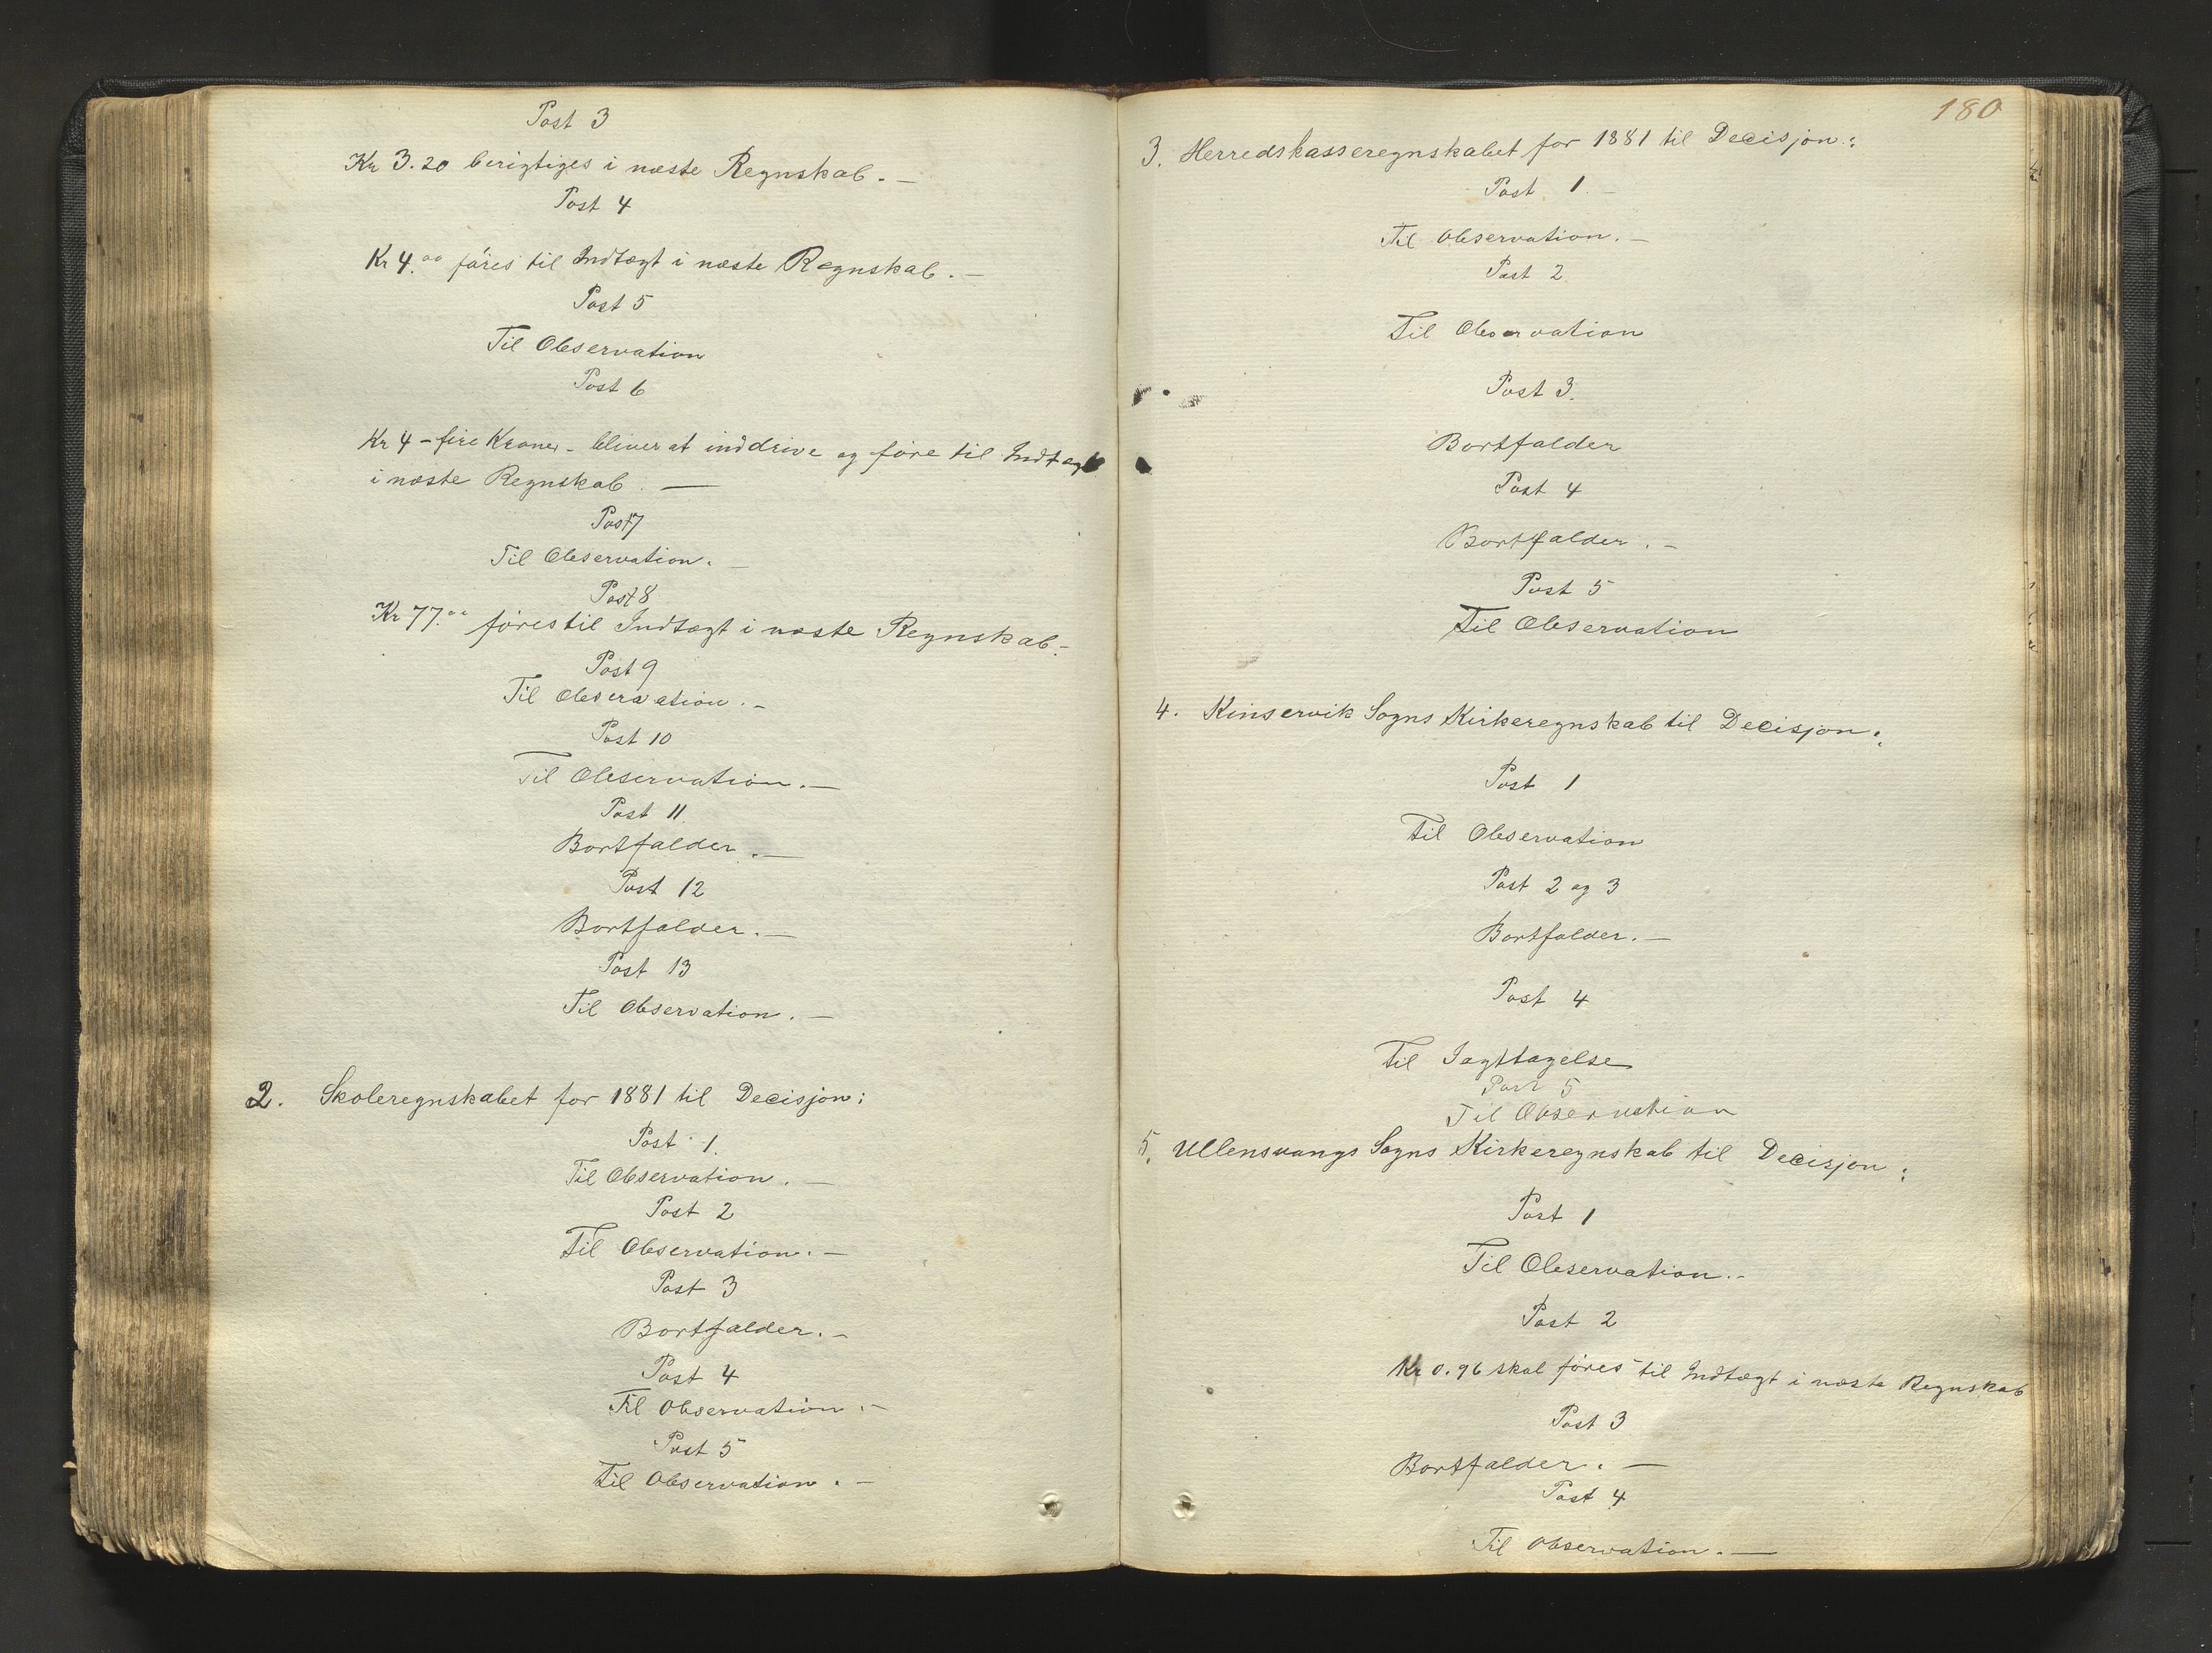 Post 3
Kr 3.20 berigtiges i næste Regnskab. —
Post 4
Kr 4.00 føres til Indtægt i næste Regnskab. —
Post 5
Til Observation
Post 6
Kr 4 – fire Kroner – bliver at inddrive og føre til Indtægt
i næste Regnskab. —
Post 7
Til Observation. —
Post 8
Kr 77.00 føres til Indtægt i næste Regnskab. –
Post 9
Til Observation. –
Post 10
Til Observation. —
Post 11.
Bortfalder. —
Post 12
Bortfalder. —
Post 13
Til Observation. —
2. Skoleregnskabet for 1881 til Decisjon:
Post 1.
Til Observation. —
Post 2
Til Observation. –
Post 3
Bortfalder. –
Post 4
Til Observation. –
Post 5
Til Observation. –
180
3. Herredskasseregnskabet for 1881 til Decisjon:
Post 1. –
Til Observation. –
Post 2
Til Observation
Post 3.
Bortfalder
Post 4
Bortfalder. –
Post 5
Til Observation
4. Kinservik Sogns Kirkeregnskab til Decisjon:
Post 1
Til Observation
Post 2 og 3
Bortfalder. —
Post 4
Til Iagttagelse
Post 5
Til Observation
5. Ullensvangs Sogns Kirkeregnskab til Decisjon:
Post 1
Til Observation. –
Post 2
Kr 0.96 skal føres til Indtægt i næste Regnskab
Post 3
Bortfalder. —
Post 4
Til Observation. —